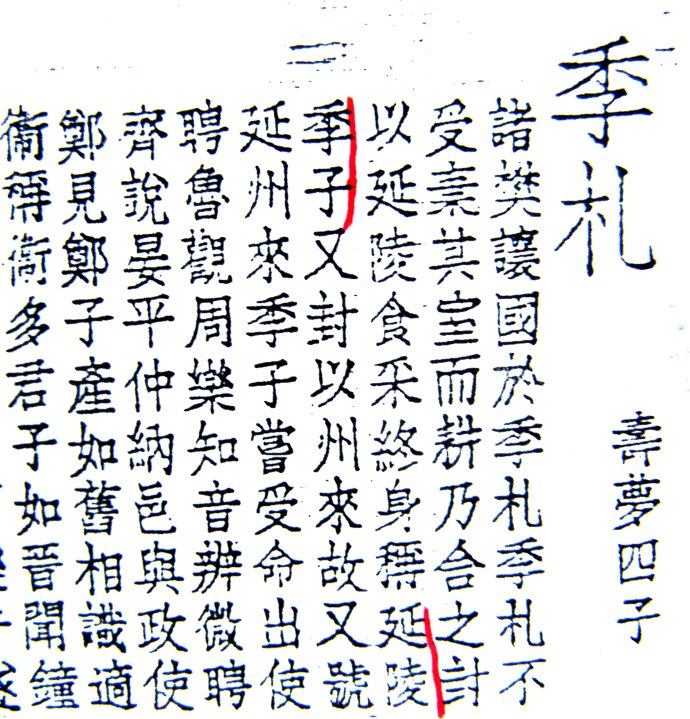 季札
壽夢四子
諸樊讓國於季札季札不
受棄其室而耕乃合之封
以延陵食采終身稱延陵
季子又封以州來故又號
延州來季子嘗受命出使
聘魯觀周樂知音辨微聘
齊說晏平仲納邑與政使
鄭見鄭子產如舊相識適
衞稱衞多君子如晉聞鐘